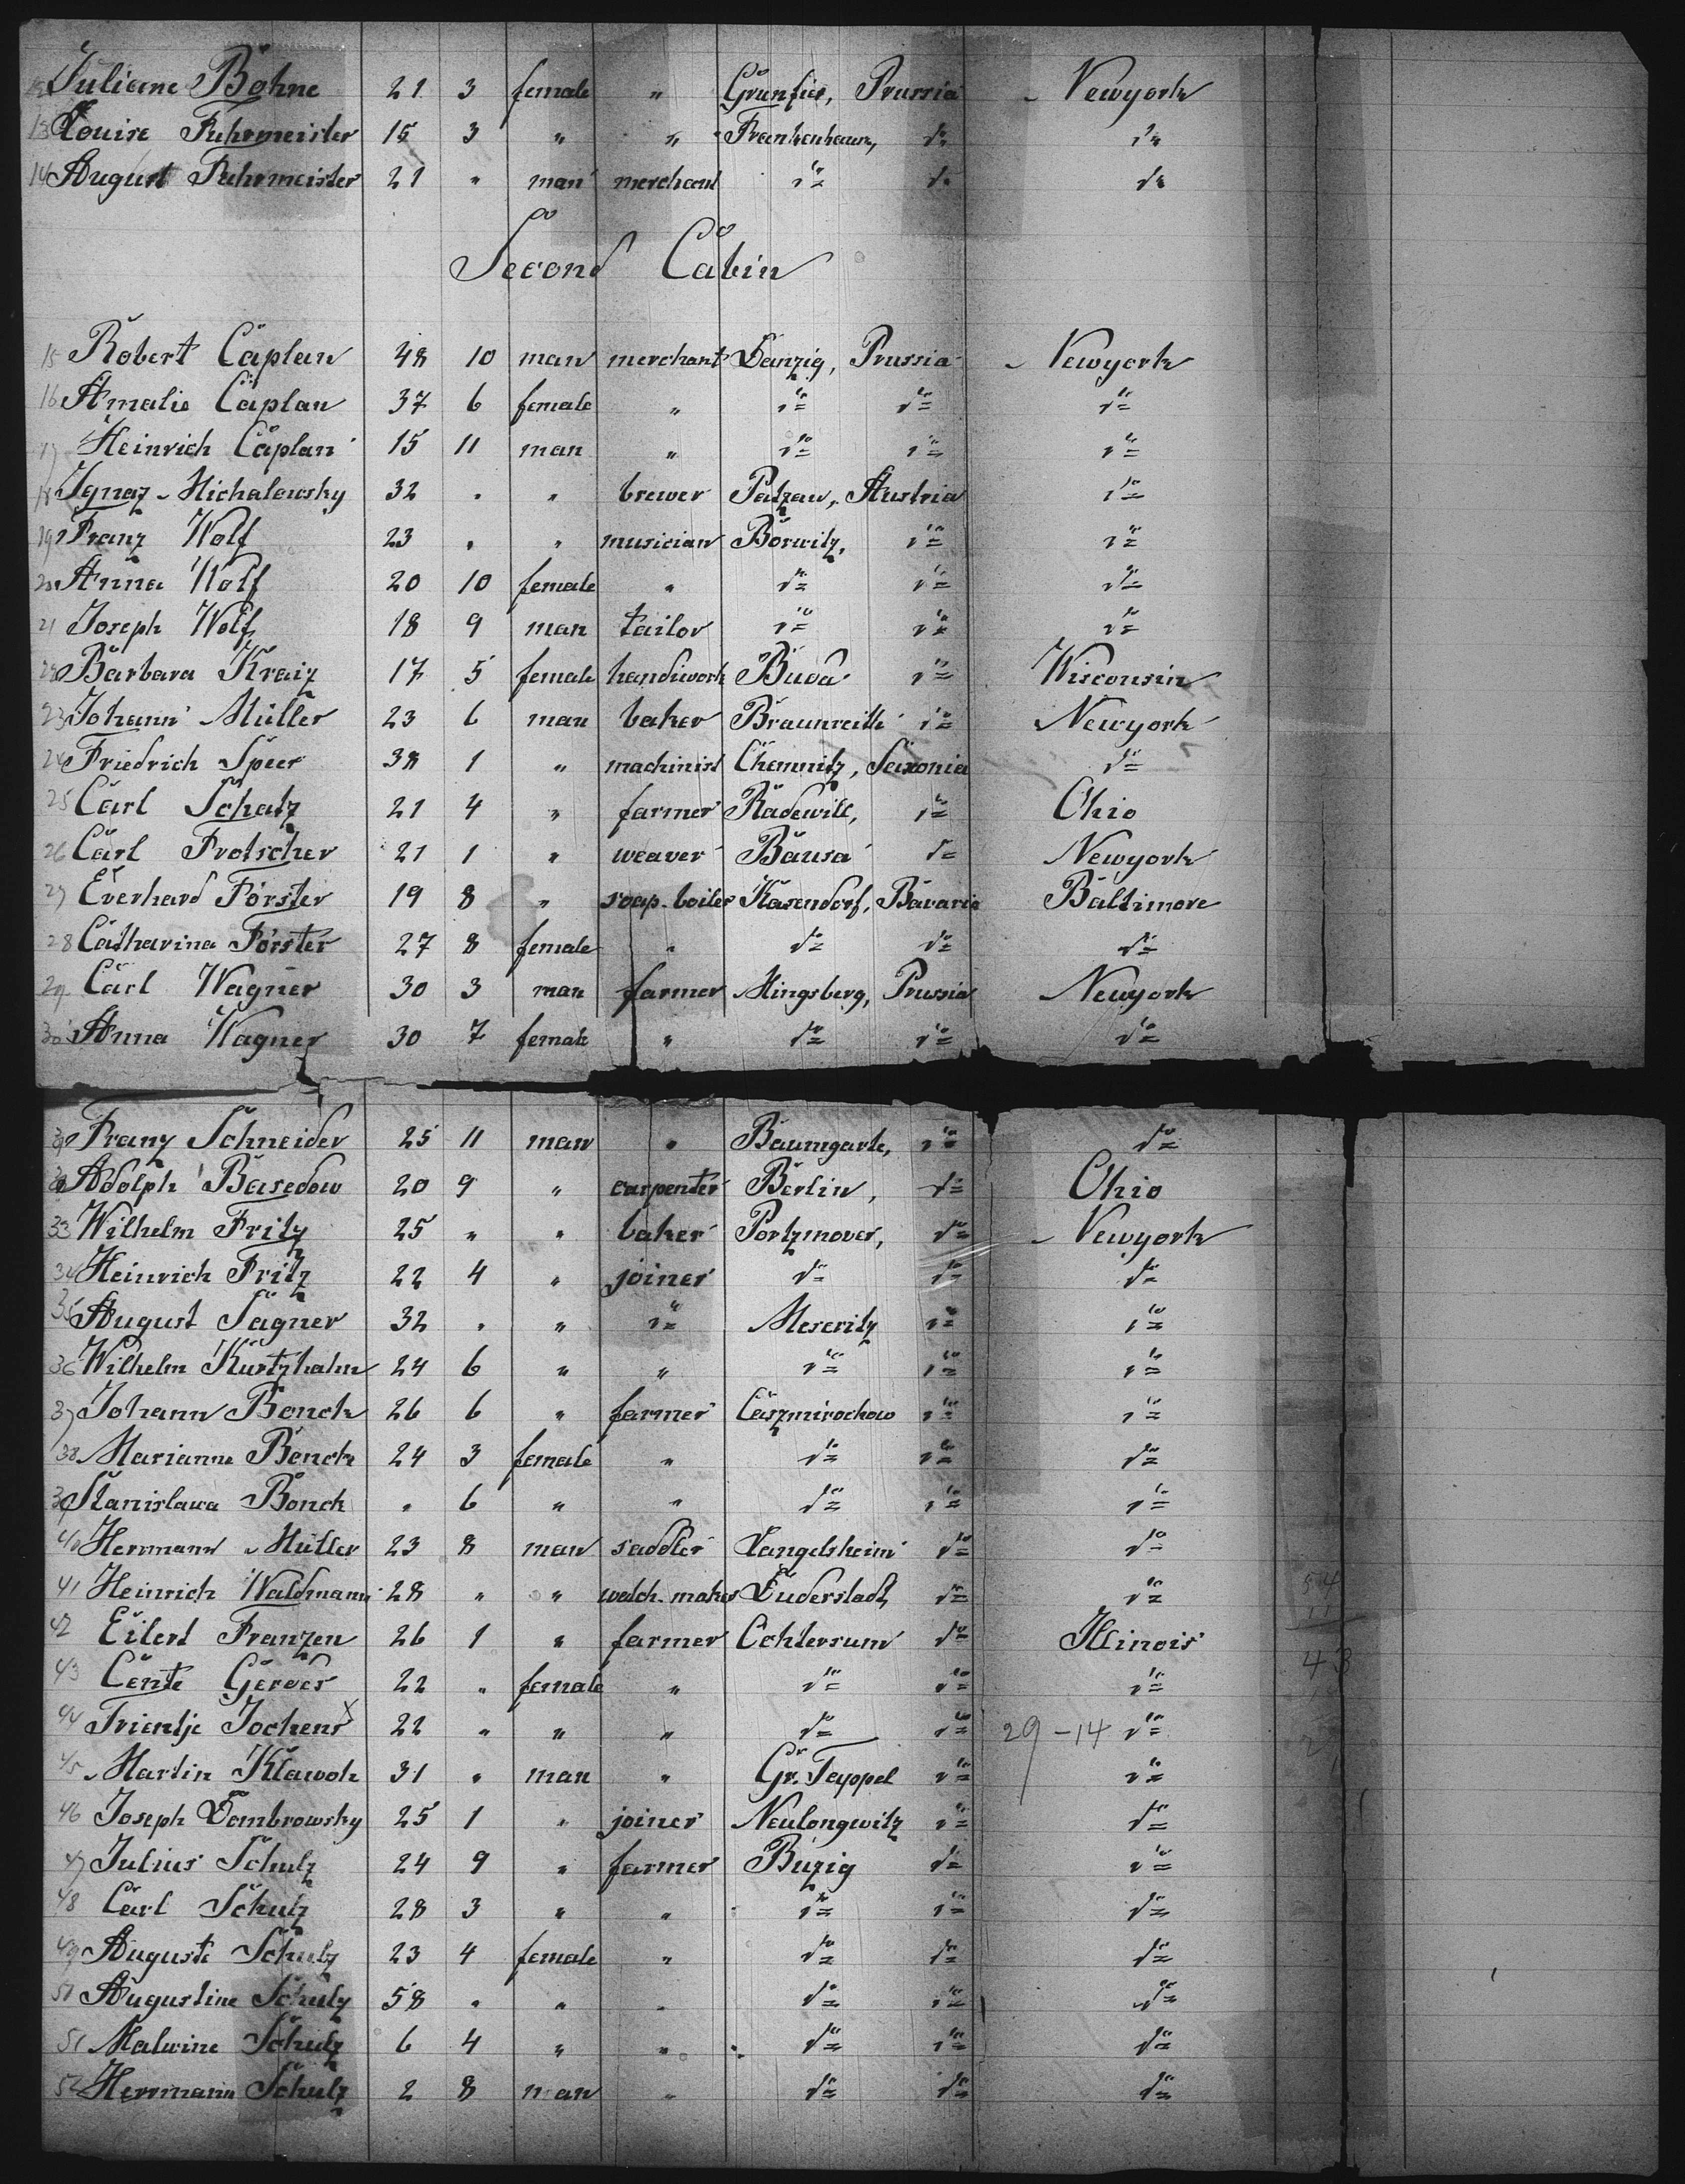 Juliane Böhne 21 3 female " Prussia Newyork
13 Louise Fuhrmeister 15 3 " " Frankenhausen, do do
14 August Fuhrmeister 21 " man merchant do do do
Second Cabin
15 Robert Caplan 48 10 man merchant Danzig, Prussia Newyork
16 Amalie Caplan 37 6 female " do do do
17 Heinrich Caplan 15 11 man " do do do
18 Ignaz Michalowsky 32 " " brewer Patzau, Austria do
19 Franz Wolf 23 " " musician Börwitz, do do
20 Anna Wolf 20 10 female " do do do
21 Joseph Wolf 18 9 man tailor do do do
22 Barbara Kraiz 17 5 female handiwork Buda do Wisconsin
23 Johann Müller 23 6 man baker do Newyork
24 Friedrich Speer 38 1 " machinist Chemnitz, Saxonia do
25 Carl Schatz 21 4 " farmer Radewill, do Ohio
26 Carl Frotscher 21 1 " weaver Bausa do Newyork
27 Everhard Förster 19 8 " soap-boiler Kasendorf, Bavaria Baltimore
28 Catharina Förster 27 8 female " do do do
29 Carl Wagner 30 3 man farmer Mingsberg, Prussia Newyork
30 Anna Wagner 30 7 female " do do do
31 Franz Schneider 25 11 man " Baumgarte, do do
32 Adolph Basedow 20 9 " carpenter Berlin, do Ohio
33 Wilhelm Fritz 25 " " baker Portzmover, do Newyork
34 Heinrich Fritz 22 4 " joiner do do do
35 August Sägner 32 " " do Meseritz do do
36 Wilhelm Kurtzhalm 24 6 " " do do do
37 Johann Bonck 26 6 " farmer Caszmirochow do do
38 Marianne Bonck 24 3 female " do do do
39 Stanislawa Bonck " 6 " " do do do
40 Herrmann Müller 23 8 man saddler Langelsheim do do
41 Heinrich Waldmann 28 " " watch-maker Duderstadt, do do 54
42 Eilert Franzen 26 1 " farmer Ochtersum do Illinois
43 Cente Gerdes 22 " female " do do do 43
44 Trientje Jochens x 22 " " " do do 29-14 do
45 Martin Klawon 31 " man " Gr. Teyppel do do
46 Joseph Dombrowsky 25 1 " joiner Neulongwitz do do
47 Julius Schulz 24 9 " farmer Buzig do do
48 Carl Schulz 28 3 " " do do do
49 Auguste Schulz 23 4 female " do do do
50 Augustine Schulz 58 " " " do do do
51 Malwine Schulz 6 4 " " do do do
52 Herrmann Schulz 2 8 man " do do do